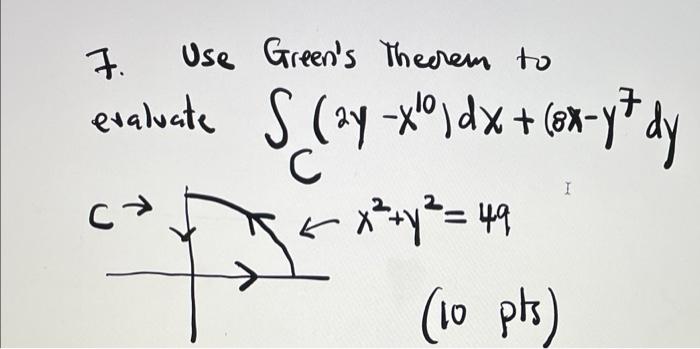 7. Use Green's Theorem to
evaluate ∫_C (2y - x^10) dx + (8x - y^7 dy
C → ← x² + y² = 49
(10 pts)